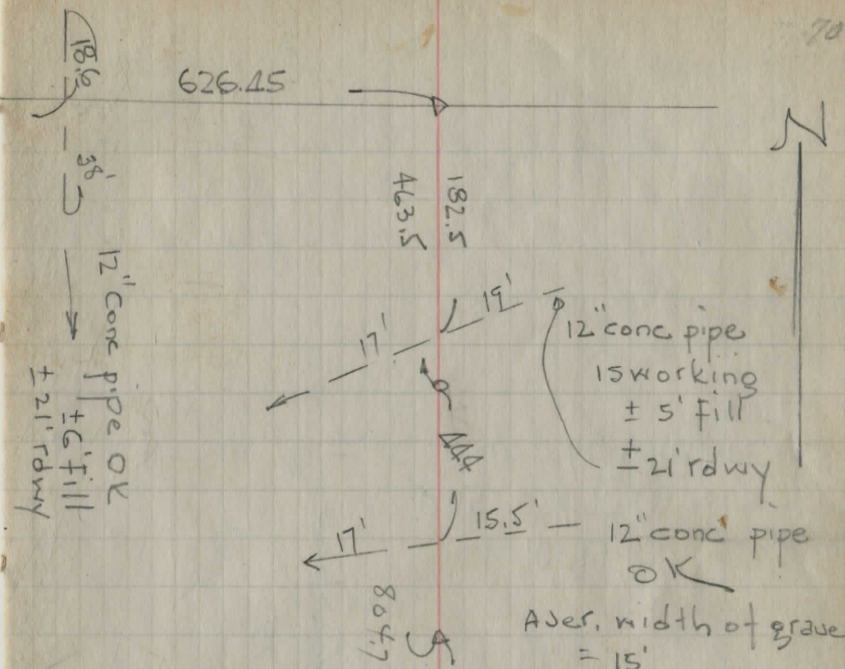 70
626.45
18.6
38'
12" Conc pipe OK
±6' fill
±21' rdwy
182.5
463.5
N
19'
17'
12" conc pipe
is working
± 5' fill
± 21' rdwy
444
17'
15.5'
12" conc pipe
OK
804.7
Aver. width of grave
= 15'